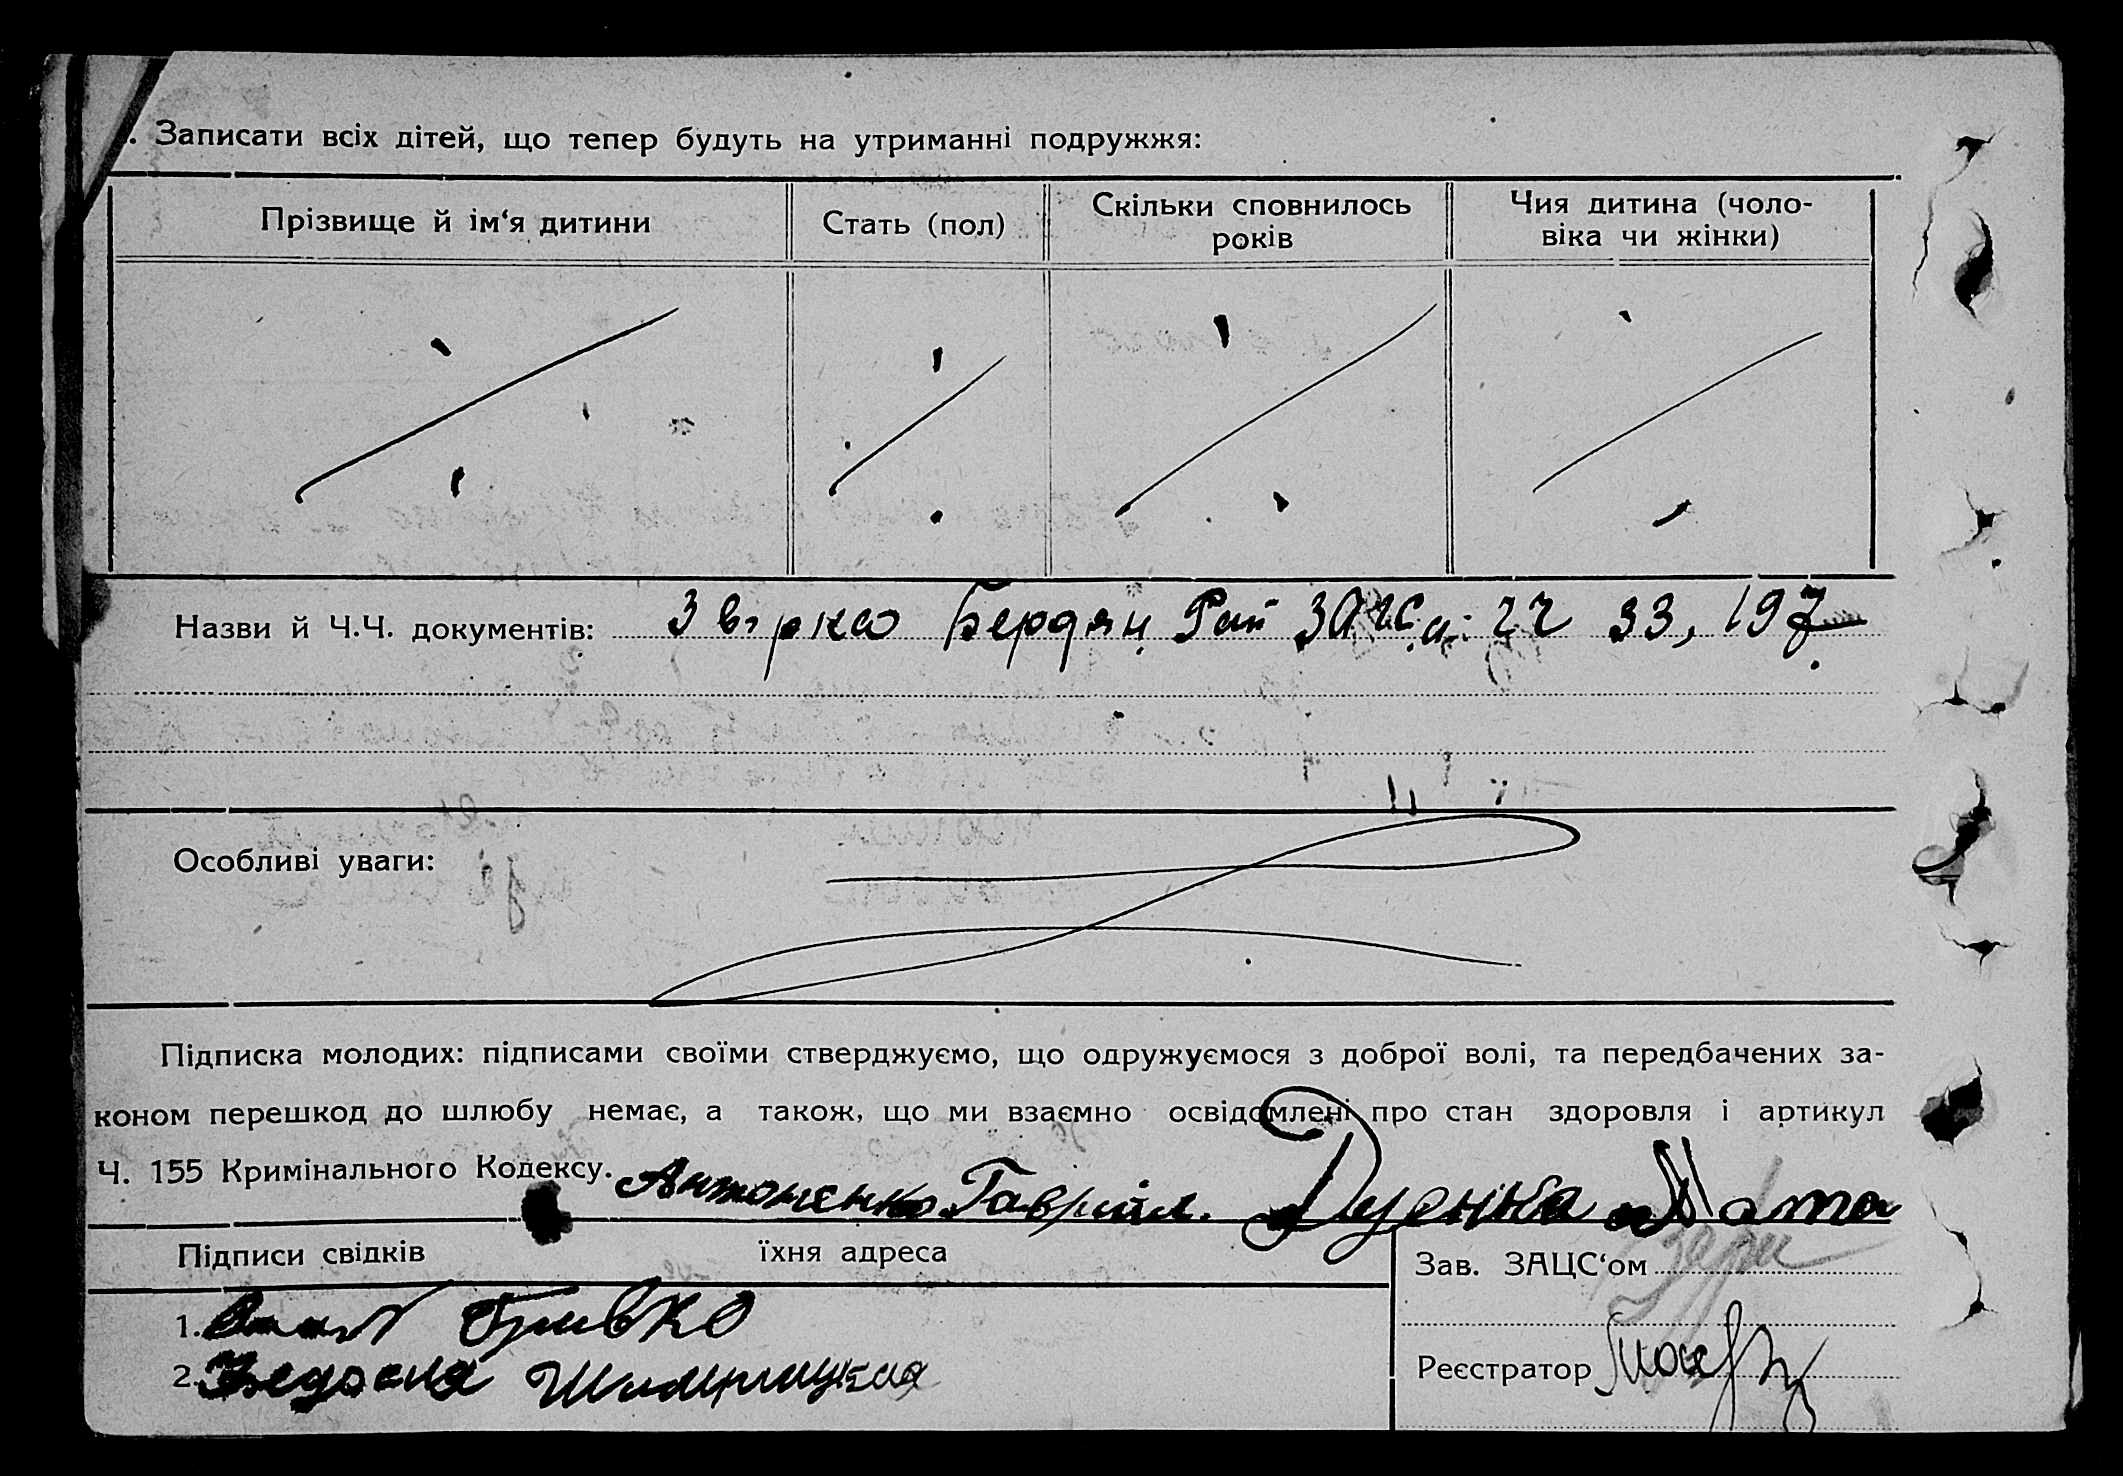 . Записати всіх дітей, що тепер будуть на утриманні подружжя:
Прізвище й ім‘я дитини
Стать (пол)
Скільки сповнилось
років
Чия дитина (чоло-
віка чи жінки)
Назви й Ч.Ч. документів: Бердян Рай ЗАЦСа 22 33, 197
Особливі уваги:
Підписка молодих: підписами своїми стверджуємо, що одружуємося з доброї волі, та передбачених за-
коном перешкод до шлюбу немає, а також, що ми взаємно освідомлені про стан здоровля і артикул
Ч. 155 Кримінального Кодексу. Антоненко Гавриил.
Підписи свідків їхня адреса
Зав. ЗАЦС‘ом
1.
2.
Реєстратор